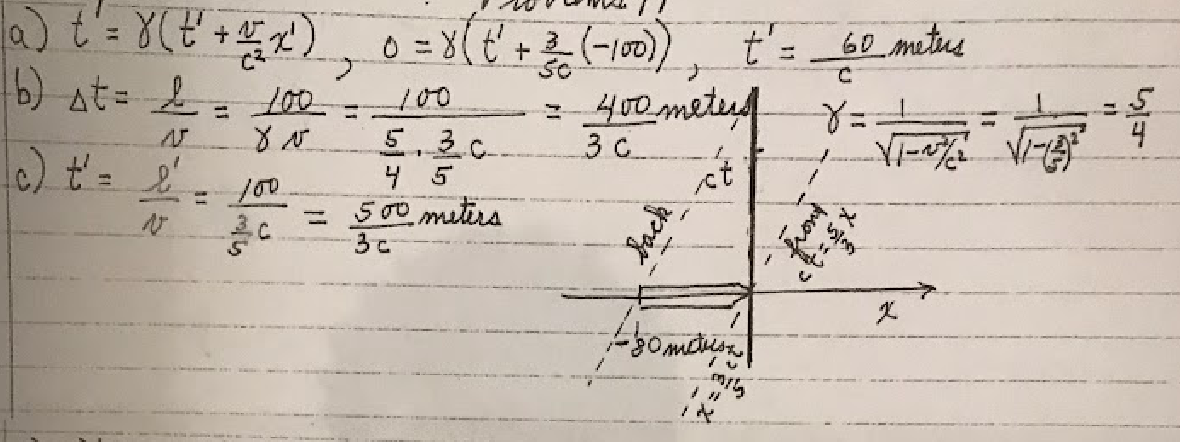 Problems
a) t' = γ(t' + v/c² x'), 0 = γ(t' + 3/5c (-100)), t' = 60/c meters
b) Δt = l/v = 100/γv = 100/(5/4 · 3/5 c) = 400 meters/3c
γ = 1/√(1-v²/c²) = 1/√(1-(3/5)²) = 5/4
c) t' = l'/v = 100/(3/5 c) = 500 meters/3c
ct
back
front
ct = 5/3 x
x
-80 meters